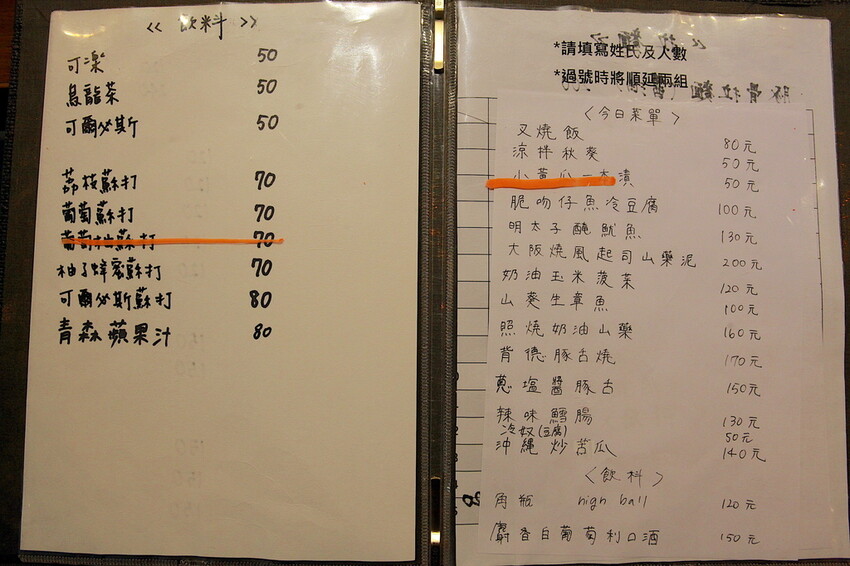 << 飲料 >>
可楽 50
烏龍茶 50
可爾必斯 50
荔枝蘇打 70
葡萄蘇打 70
葡萄柚蘇打 70
柚子蜂蜜蘇打 70
可爾必斯蘇打 80
青森蘋果汁 80
*請填寫姓氏及人數
*過號時將順延兩組
〈今日菜單〉
叉燒飯 80元
涼拌秋葵 50元
小黃瓜一本漬 50元
脆吻仔魚冷豆腐 100元
明太子醃魷魚 130元
大阪燒風起司山藥泥 200元
奶油玉米菠菜 120元
山葵生章魚 100元
照燒奶油山藥 160元
背德豚古燒 170元
蔥塩醬豚古 150元
辣味鱈腸 130元
冷奴(豆腐) 50元
沖縄炒苦瓜 140元
〈飲料〉
角瓶 high ball 120元
麝香白葡萄利口酒 150元